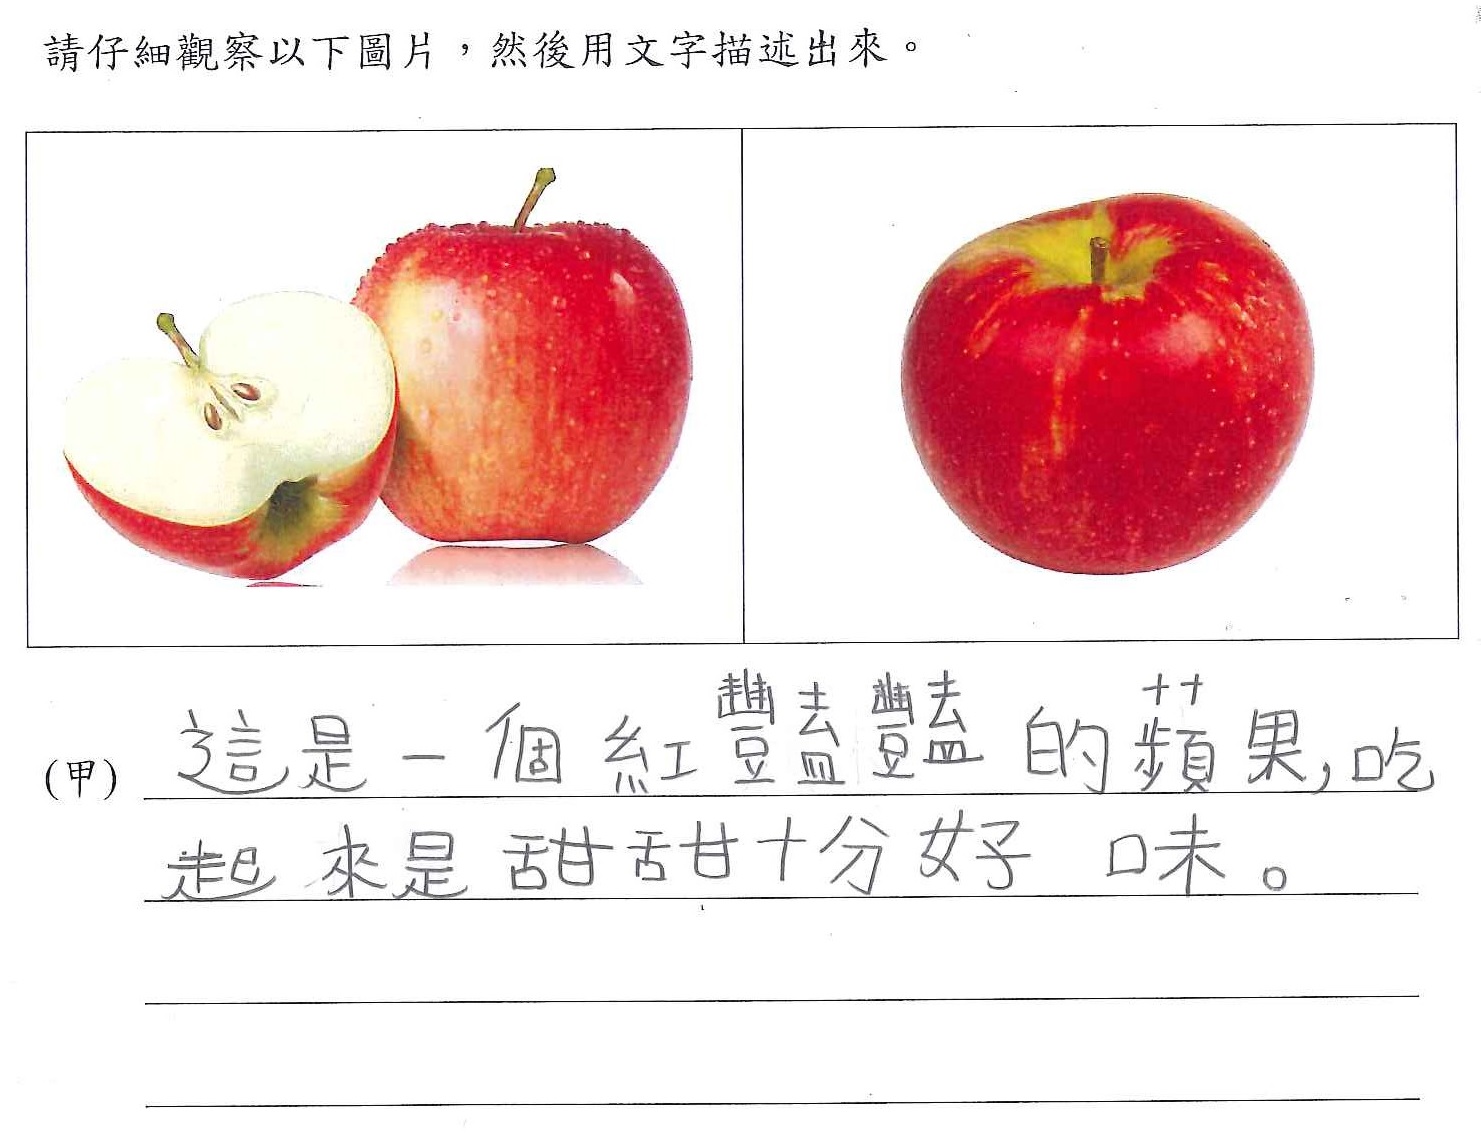 請仔細觀察以下圖片，然後用文字描述出來。
(甲) 這是一個紅豔豔的蘋果，吃
起來是甜甜十分好味。